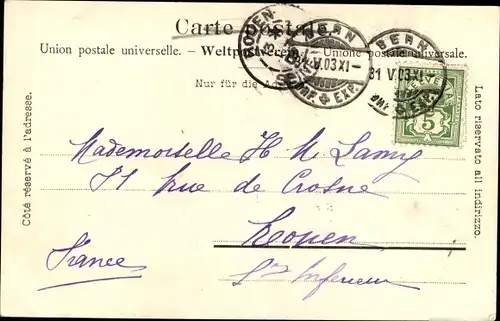 Carte postale.
Union postale universelle. – Weltpostverein. – Unione postale universale.
Nur für die
Côté réservé à l'adresse.
Lato riservato all indirizzo.
BERN
31 V.03 XI–
BRF. EXP.
BERN
31 V.03 XI–
EXP.
ROUEN
HELVETIA
5
Mademoiselle H M Lamy
71 Rue de Crosne
Rouen
France
Sne Inferieure